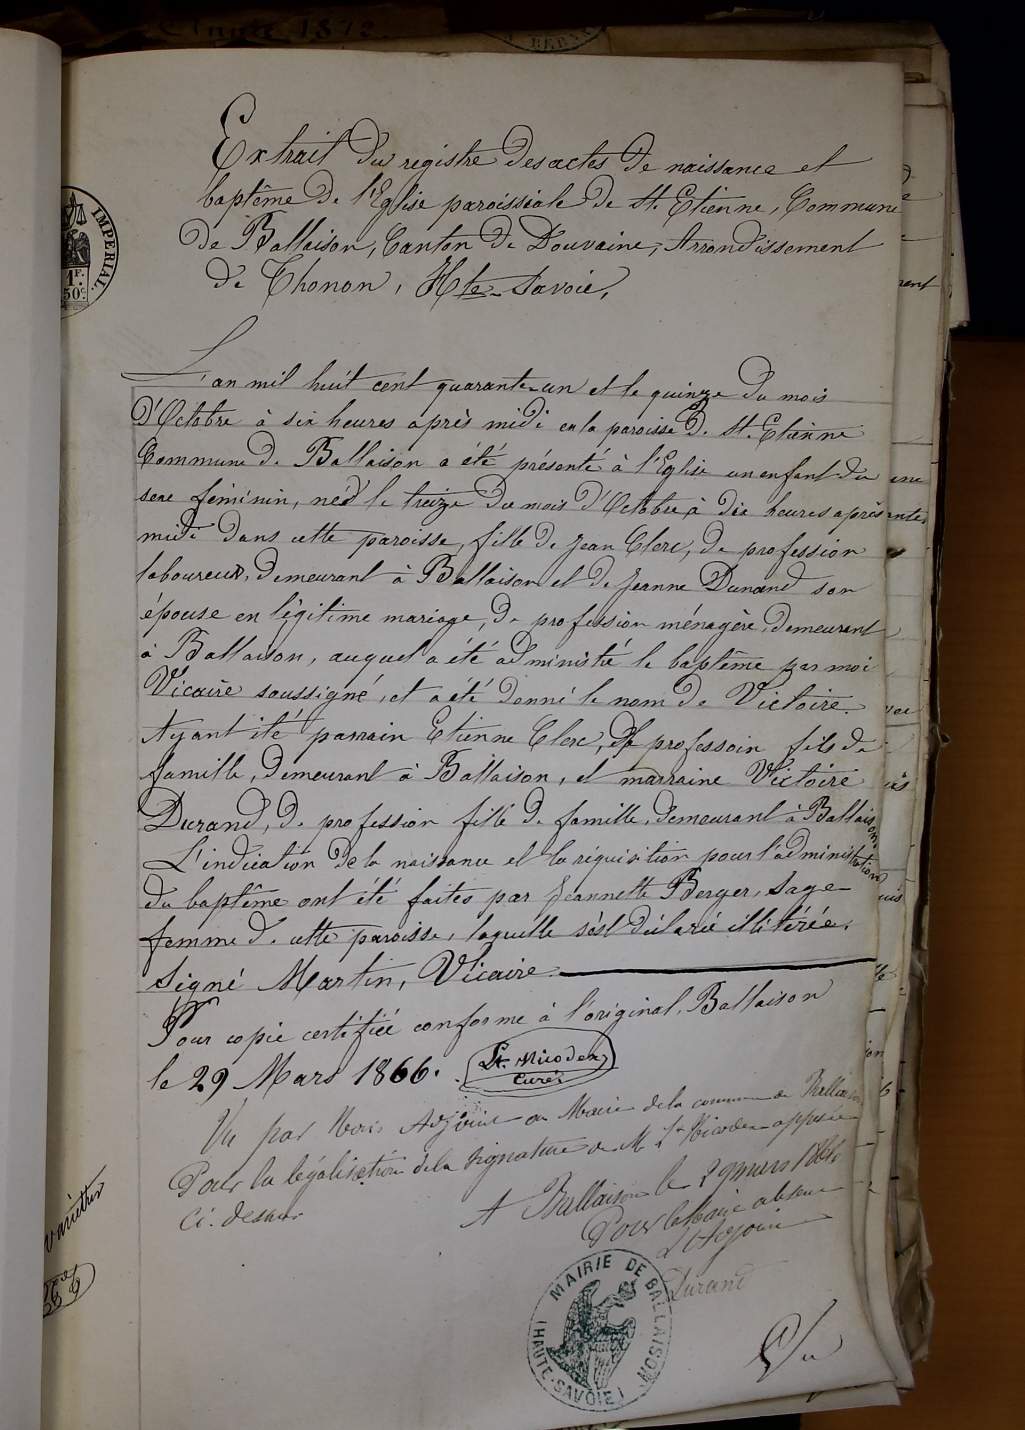 Année 1872.
BERNA
IMPERIAL.
1F.
50c
Extrait du registre des actes de naissance et
baptême de l'Eglise paroissiale de St. Etienne, Commune
de Ballaison, Canton de Douvaine, Arrondissement
de Thonon, Hte-Savoie.
L'an mil huit cent quarante-un et le quinze du mois
d'Octobre à six heures après midi en la paroisse de St. Etienne
Commune de Ballaison a été présenté à l'Eglise un enfant du
sexe féminin, né d le treize du mois d'Octobre, à dix heures après
midi dans cette paroisse, fille de Jean Clerc, de profession
laboureur, demeurant à Ballaison et de Jeanne Durand son
épouse en légitime mariage, de profession ménagère, demeurant
à Ballaison, auquel a été administré le baptême par moi
Vicaire soussigné, et a été donné le nom de Victoire.
Ayant été parrain Etienne Clerc, de professoin fils de
famille, demeurant à Ballaison, et marraine Victoire
Durand, de profession fille de famille, demeurant à Ballaison.
L'indication de la naissance et la réquisition pour l'administration
du baptême ont été faites par Jeannette Berger, sage-
femme de cette paroisse, laquelle s'est déclarée illitérée.
Signé Martin, Vicaire.
Pour copie certifiée conforme à l'original. Ballaison
le 29 Mars 1866. St. Nicodex
Curé
Vu par Nous Adjoint au Maire de la commune de Ballaison
Pour la légalisation de la signature de M. St Nicodex apposée
Ci-dessus
A Ballaison le 29 mars 1866
Pour le Maire absent
L'Adjoint
Durand
MAIRIE DE BALLAISON
(HAUTE-SAVOIE)